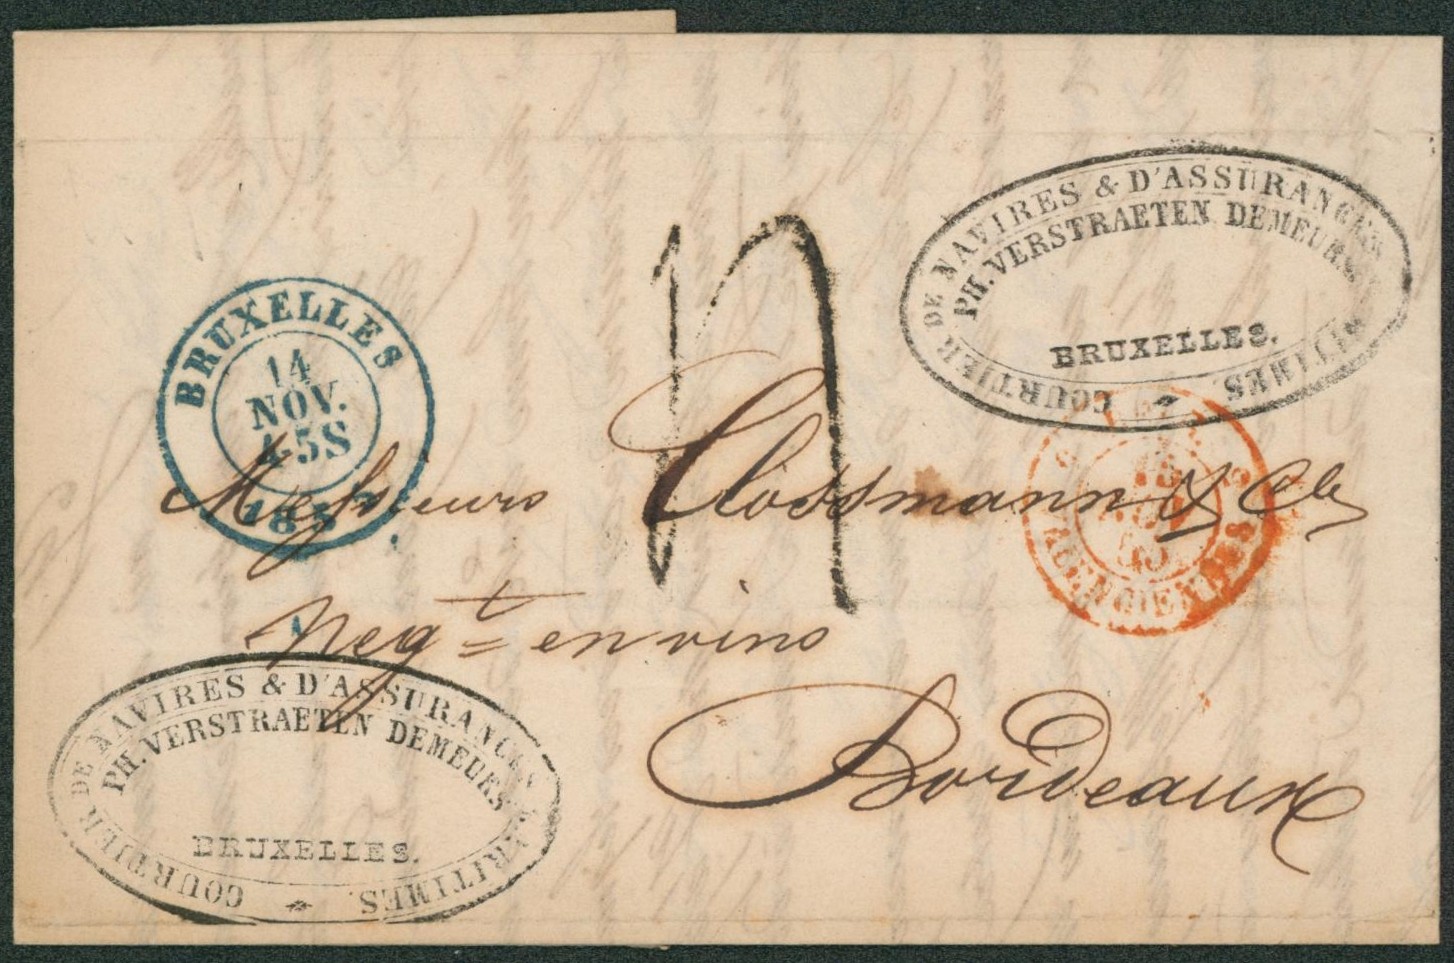 COURTIER DE NAVIRES & D'ASSURANCES MARITIMES.
PH. VERSTRAETEN DEMEURS
BRUXELLES.
BRUXELLES
14
NOV.
Messieurs Clossmann & Cie
Negt en vins
Bordeaux
VALENCIENNES
COURTIER DE NAVIRES & D'ASSURANCES MARITIMES.
PH. VERSTRAETEN DEMEURS
BRUXELLES.